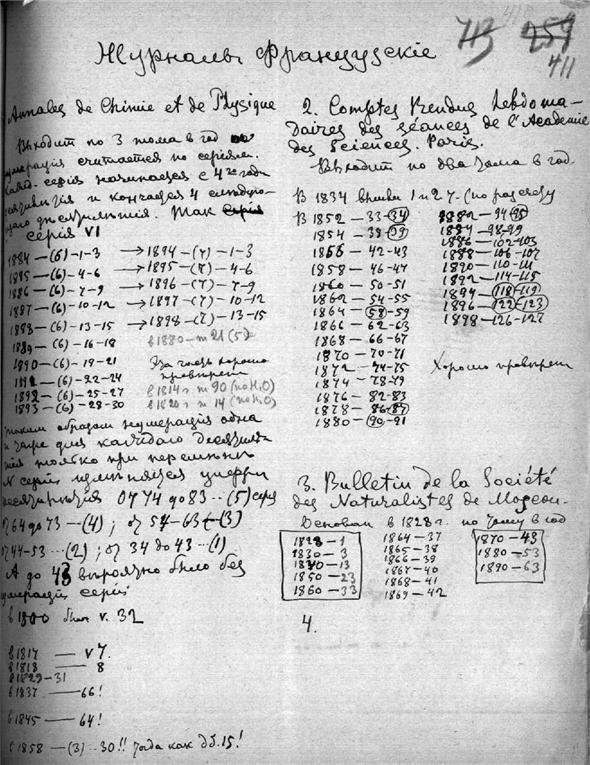 713 259
411
Журналы Французскіе
Annales de Chimie et de Physique
Выходит по 3 тома в год
нумерація считается по серіям.
серія начинается с 4го года
и кончается 4
Так
серія VI
1884 — (6) — 1-3 → 1894 — (7) — 1-3
1885 — (6) — 4-6 → 1895 — (7) — 4-6
1886 — (6) — 7-9 → 1896 — (7) — 7-9
1887 — (6) — 10-12 → 1897 — (7) — 10-12
1888 — (6) — 13-15 → 1898 — (7) — 13-15
1889 — (6) — 16-18 в 1880 — т 21 (5)
1890 — (6) — 19-21 Эта часть хорошо
проверена
1892 — (6) — 25-27 в 1814 г т 90 (по H2O)
1893 — (6) — 28-30 в 1820 г т 14 (по H2O)
Таким образом нумерація одна
и та же для каждого десятилѣ-
тія только при
N серіи цифры
десятилѣтія От 74 до 83 ... (5) серія
от 64 до 73 — (4); от 54-63 — (3)
от 44-53 ... (2); от 34 до 43 ... (1)
А до было без
нумераціи серій
в 1800 был v. 32
в 1817 — v 7.
в 1818 — 8
в 1829-31
в 1837 — 66!
в 1845 — 64!
в 1858 — (3) .. 30!! тогда как д.б. 15!
2. Comptes Rendus hebdoma-
daires des séances de l'Academie
des Sciences. Paris.
Выходит по два тома в год.
В 1834 1 и 2 т. (по разсчету
В 1852 — 33-34 1882 — 94-95
1854 — 38-39 1884 — 98-99
1856 — 42-43 1886 — 102-103
1858 — 46-47 1888 — 106-107
1860 — 50-51 1890 — 110-111
1862 — 54-55 1892 — 114-115
1864 — 58-59 1894 — 118-119
1866 — 62-63 1896 — 122-123
1868 — 66-67 1898 — 126-127
1870 — 70-71
1872 — 74-75 Хорошо проверен
1874 — 78-79
1876 — 82-83
1878 — 86-87
1880 — 90-91
3. Bulletin de la Société
des Naturalistes de Moscou.
Основан в 1828 г. по тому в год
1828 — 1 1864 — 37 1870 — 43
1830 — 3 1865 — 38 1880 — 53
1840 — 13 1866 — 39 1890 — 63
1850 — 23 1867 — 40
1860 — 33 1868 — 41
1869 — 42
4.